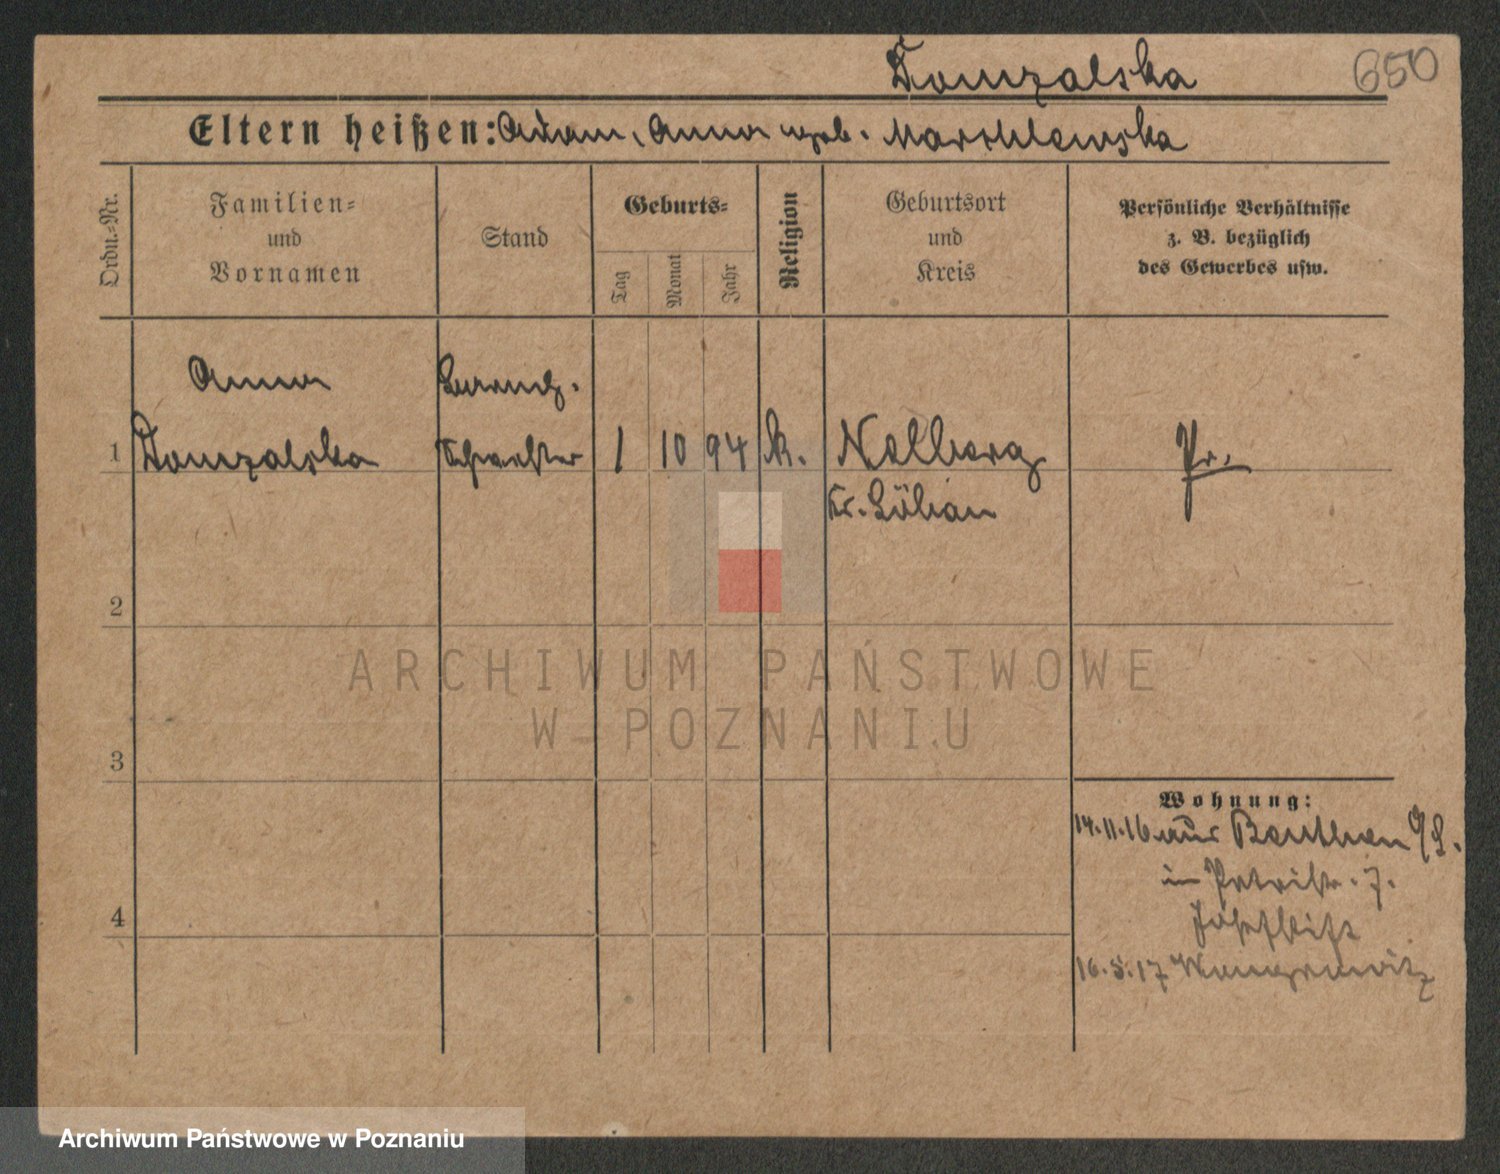 Domzalska
650
Eltern heißen: Adam, Anna geb. Marchlewska
Ordn.-Nr.
Familien-
und
Vornamen
Stand
Geburts-
Tag
Monat
Jahr
Religion
Geburtsort
und
Kreis
Persönliche Verhältnisse
z. B. bezüglich
des Gewerbes usw.
Anna
1 Domzalska
Schwester
1 10 94 k.
Kr. Löbau
Pr.
2
ARCHIWUM PAŃSTWOWE
W POZNANIU
3
Wohnung:
14.11.16 aus Beuthen O/S.
in Petristr. 7.
Josefstift
16.5.17 Wongrowitz
4
Archiwum Państwowe w Poznaniu